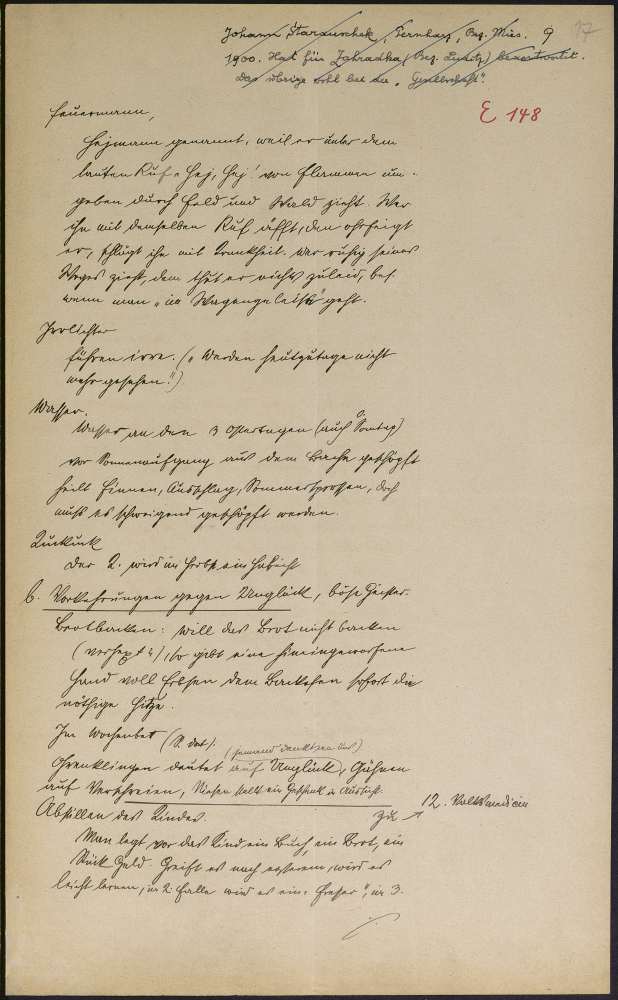 Johann Starauschek, Bernharz, Bez. Mies. 9 17
1900. Hat für Zahradka (Bez. Luditz) beantwortet.
Das übrige wohl bei der „Gesellschaft".
E 148
Feuermann,
Hejmann genannt, weil er unter dem
lauten Ruf „Hej, hej! von Flammen um-
geben durch Feld und Wald zieht. Wer
ihn mit demselben Ruf äfft, den ohrfeigt
er, schlägt ihn mit Krankheit. Wer ruhig seines
Weges zieht, dem thut er nichts zuleid, bes.
wenn man „im Wagengeleise" geht.
Irrlichter
führen irre. („Werden heutzutage nicht
mehr gesehen!")
Wasser.
Wasser an den 3 Ostertagen (auch Sonntag)
vor Sonnenaufgang aus dem Bache geschöpft
heilt Finnen, Ausschlag, Sommersprossen, doch
muß es schweigend geschöpft werden.
Kuckuck
Der K. wird im Herbst ein Habicht
6. Vorkehrungen gegen Unglück, böse Geister.
Brotbacken: will das Brot nicht backen
(verhext), so gibt eine hineingeworfene
Hand voll Erbsen dem Backofen sofort die
nöthige Hitze.
Im Wochenbet (S. dat).
(jemand denkt an uns)
Ohrenklingen deutet auf Unglück, Gähnen
auf Verschreien, Niesen stellt ein Geschenk in Aussicht.
Abstillen des Kindes. zu → 12. Volksmedicin
Man legt vor das Kind ein Buch, ein Brot, ein
Stück Geld. Greift es nach ersterem, wird es
leicht lernen, im 2. Falle wird es ein „Fresser", im 3.